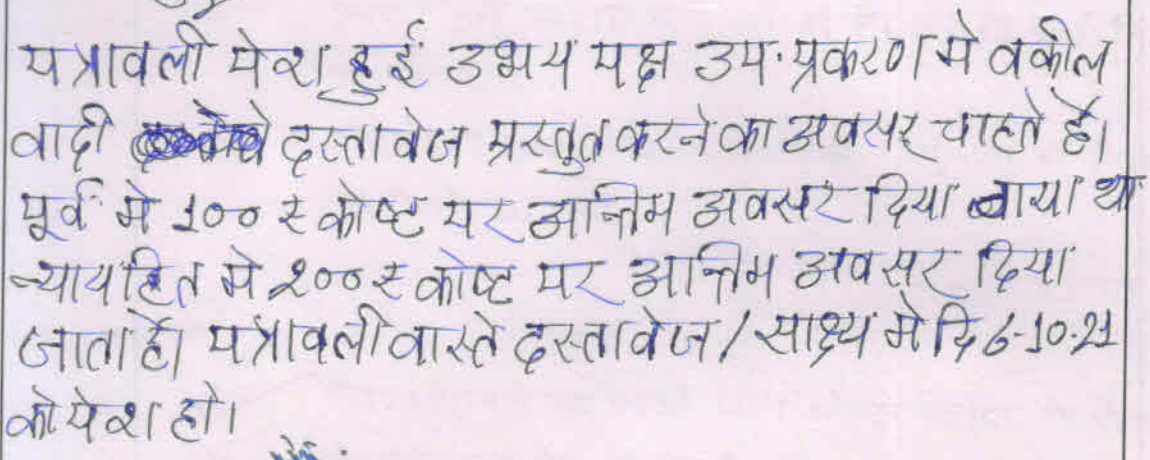 पत्रावली पेश हुई उभय पक्ष उप. प्रकरण मे वकील
वादी दस्तावेज प्रस्तुत करने का अवसर चाहते है।
पूर्व मे 100 रु कोष्ट पर अन्तिम अवसर दिया गया था
न्यायहित मे 200 रु कोष्ट पर अन्तिम अवसर दिया
जाता है। पत्रावली वास्ते दस्तावेज / साक्ष्य मे दि 6-10-21
को पेश हो।